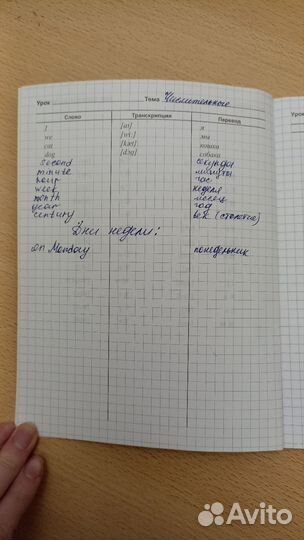 Урок Тема Числительное
Слово Транскрипция Перевод
I [aı] я
we [wi:] мы
cat [kæt] кошка
dog [dɔg] собака
second секунда
minute минуты
hour час
week неделя
month месяц
year год
century век (столетие)
Дни недели:
on Monday понедельник
Avito